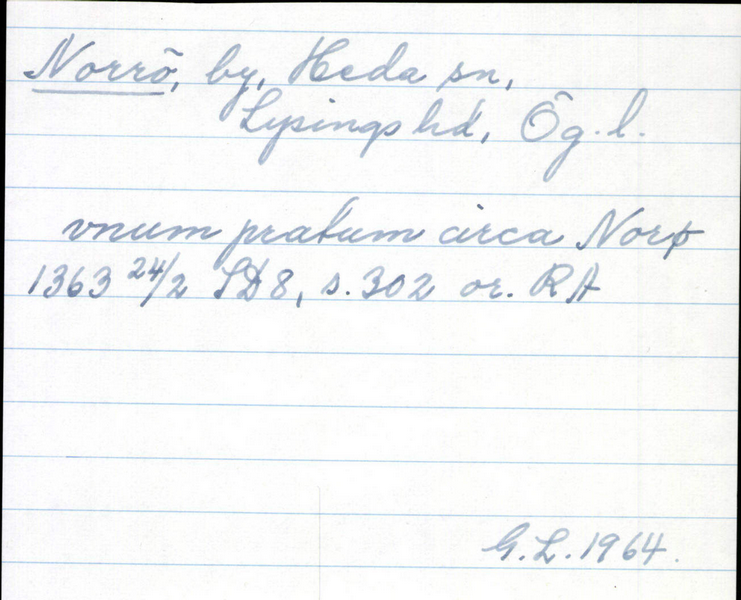 Norrö, by, Heda sn,
Lysings hd, Ög. l.
vnum pratum circa Norø
1363 24/2 SD8, s. 302 or. RA
G. L. 1964.